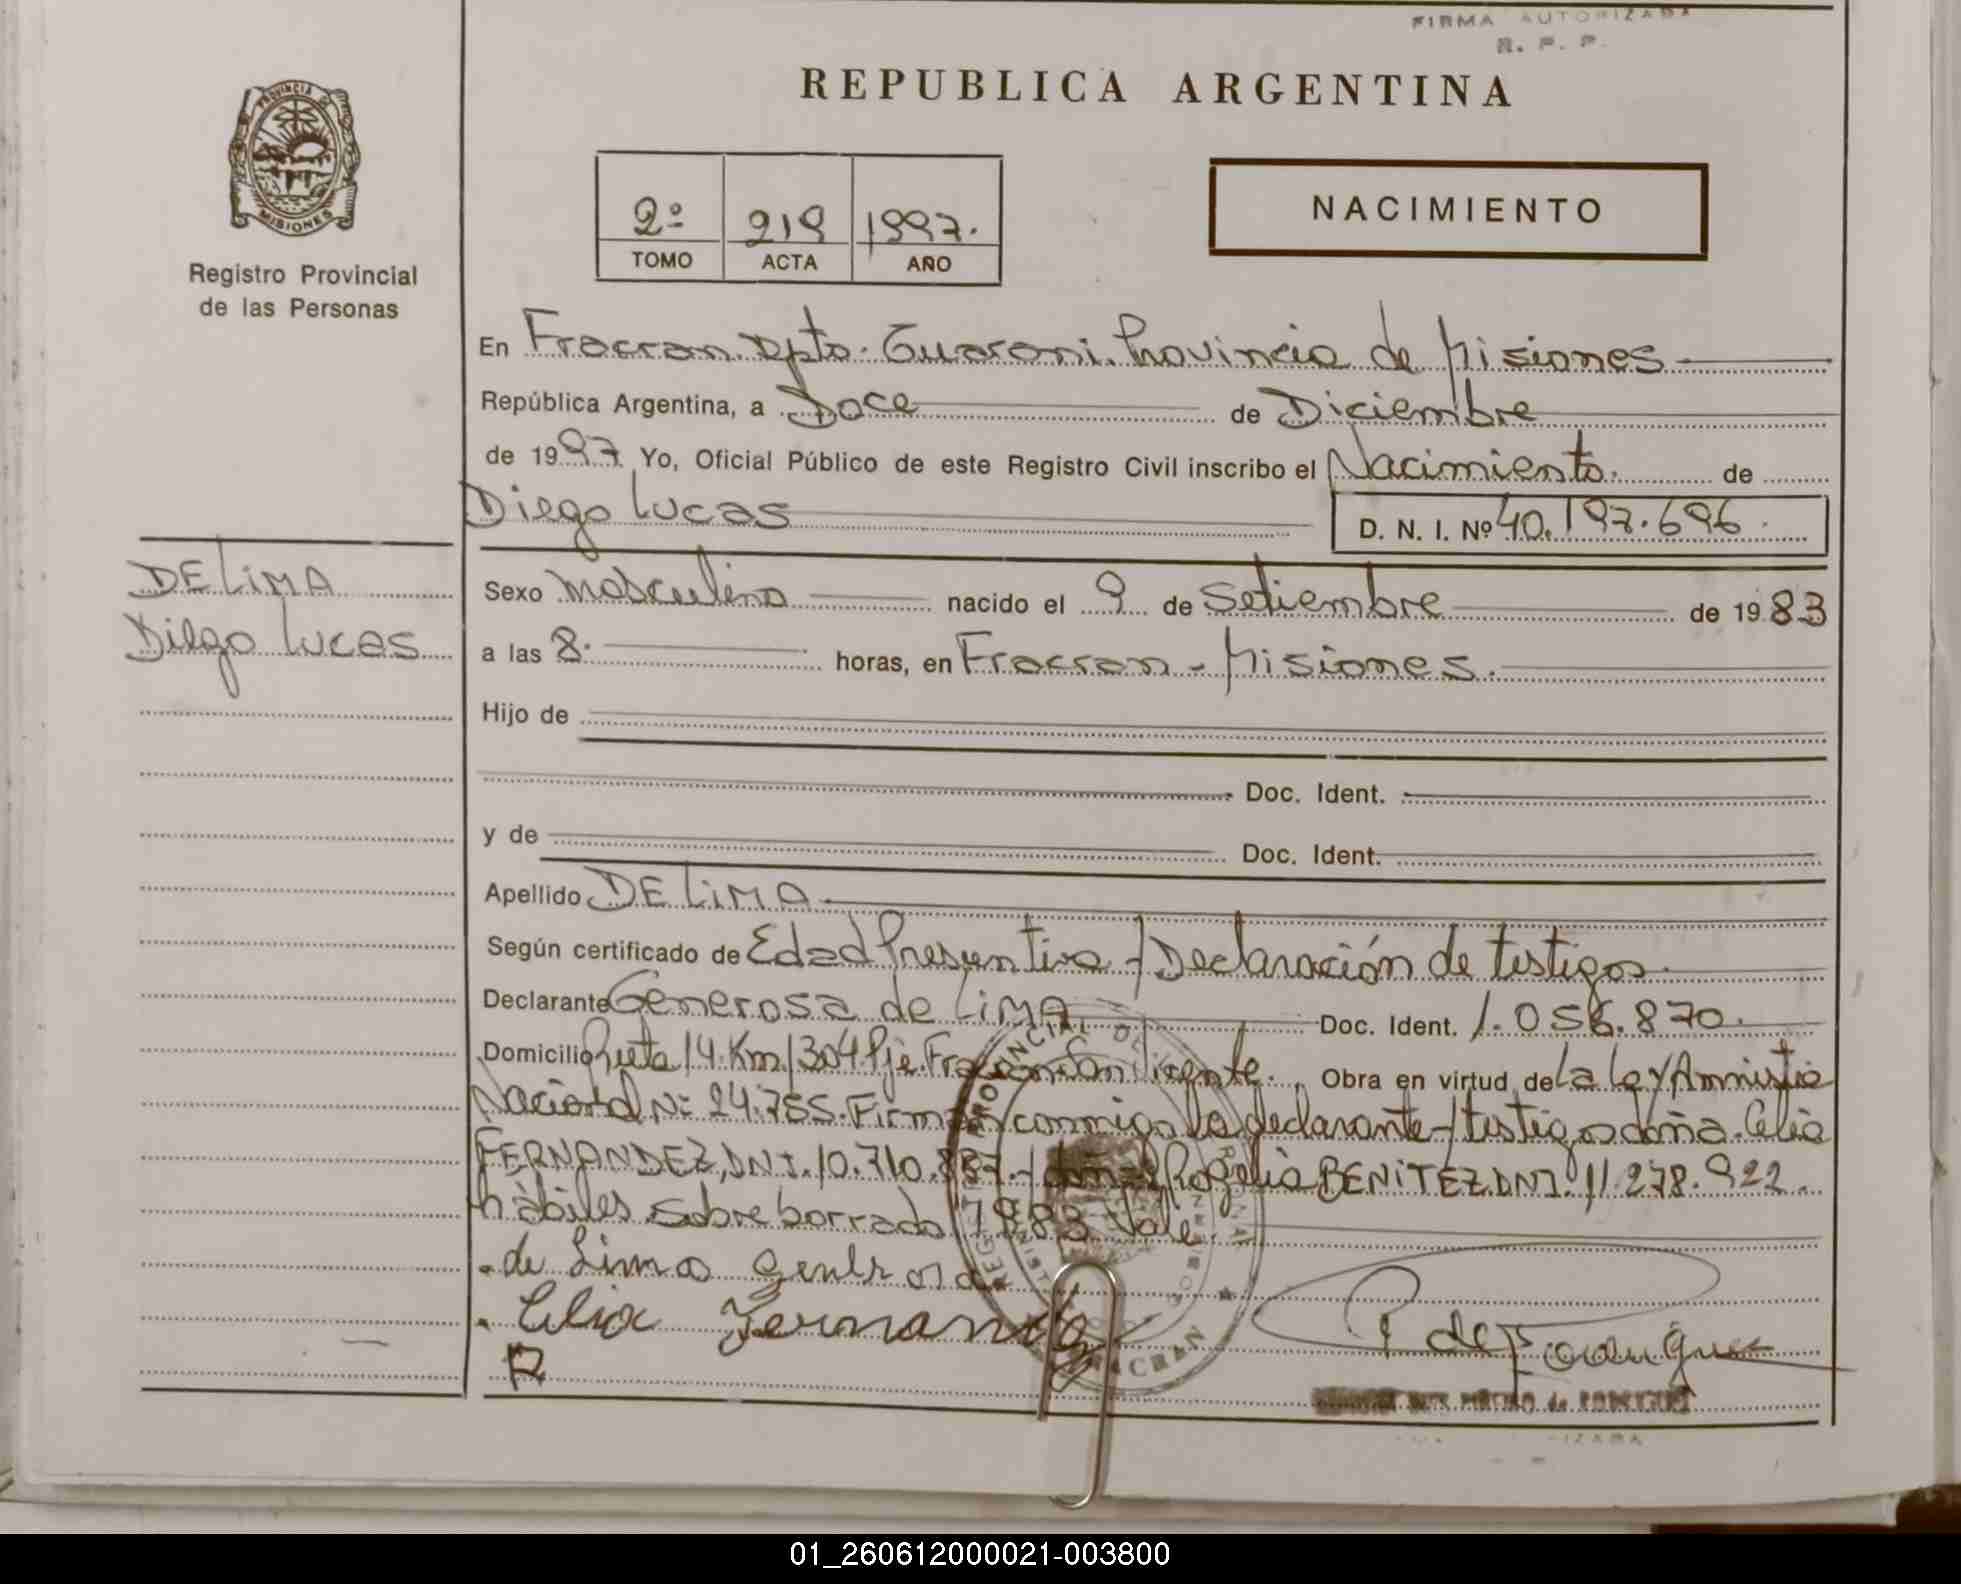 FIRMA AUTORIZADA
R. P. P.
REPUBLICA ARGENTINA
PROVINCIA DE
MISIONES
Registro Provincial
de las Personas
2º 219 1997.
TOMO ACTA AÑO
NACIMIENTO
En Fracran Dpto. Guarani. Provincia de Misiones
República Argentina, a Doce de Diciembre
de 1997 Yo, Oficial Público de este Registro Civil inscribo el Nacimiento. de
Diego Lucas D. N. I. Nº 40.197.696.
DE LIMA
Diego Lucas
Sexo Masculino nacido el 9 de Setiembre de 1983
a las 8. horas, en Fracran - Misiones.
Hijo de
Doc. Ident.
y de Doc. Ident.
Apellido DE LIMA
Según certificado de Edad Presuntiva y Declaración de testigos.
Declarante Generosa de LIMA Doc. Ident. 1.056.870.
Domicilio Ruta 14 Km 1304 Pje. Fracran San Vicente. Obra en virtud de la Ley Amnistia
Nacional Nº 24.755. Firman conmigo la declarante y testigos doña Celia
FERNANDEZ, DNI. 10.710.887. y doña Rogelia BENITEZ DNI. 11.278.922.
hábiles. Sobre borrado 1983 Vale.
. de Lima Generosa
. Celia Fernandez
R
P de Rodriguez
de RODRIGUEZ
FRACRAN
01_260612000021-003800